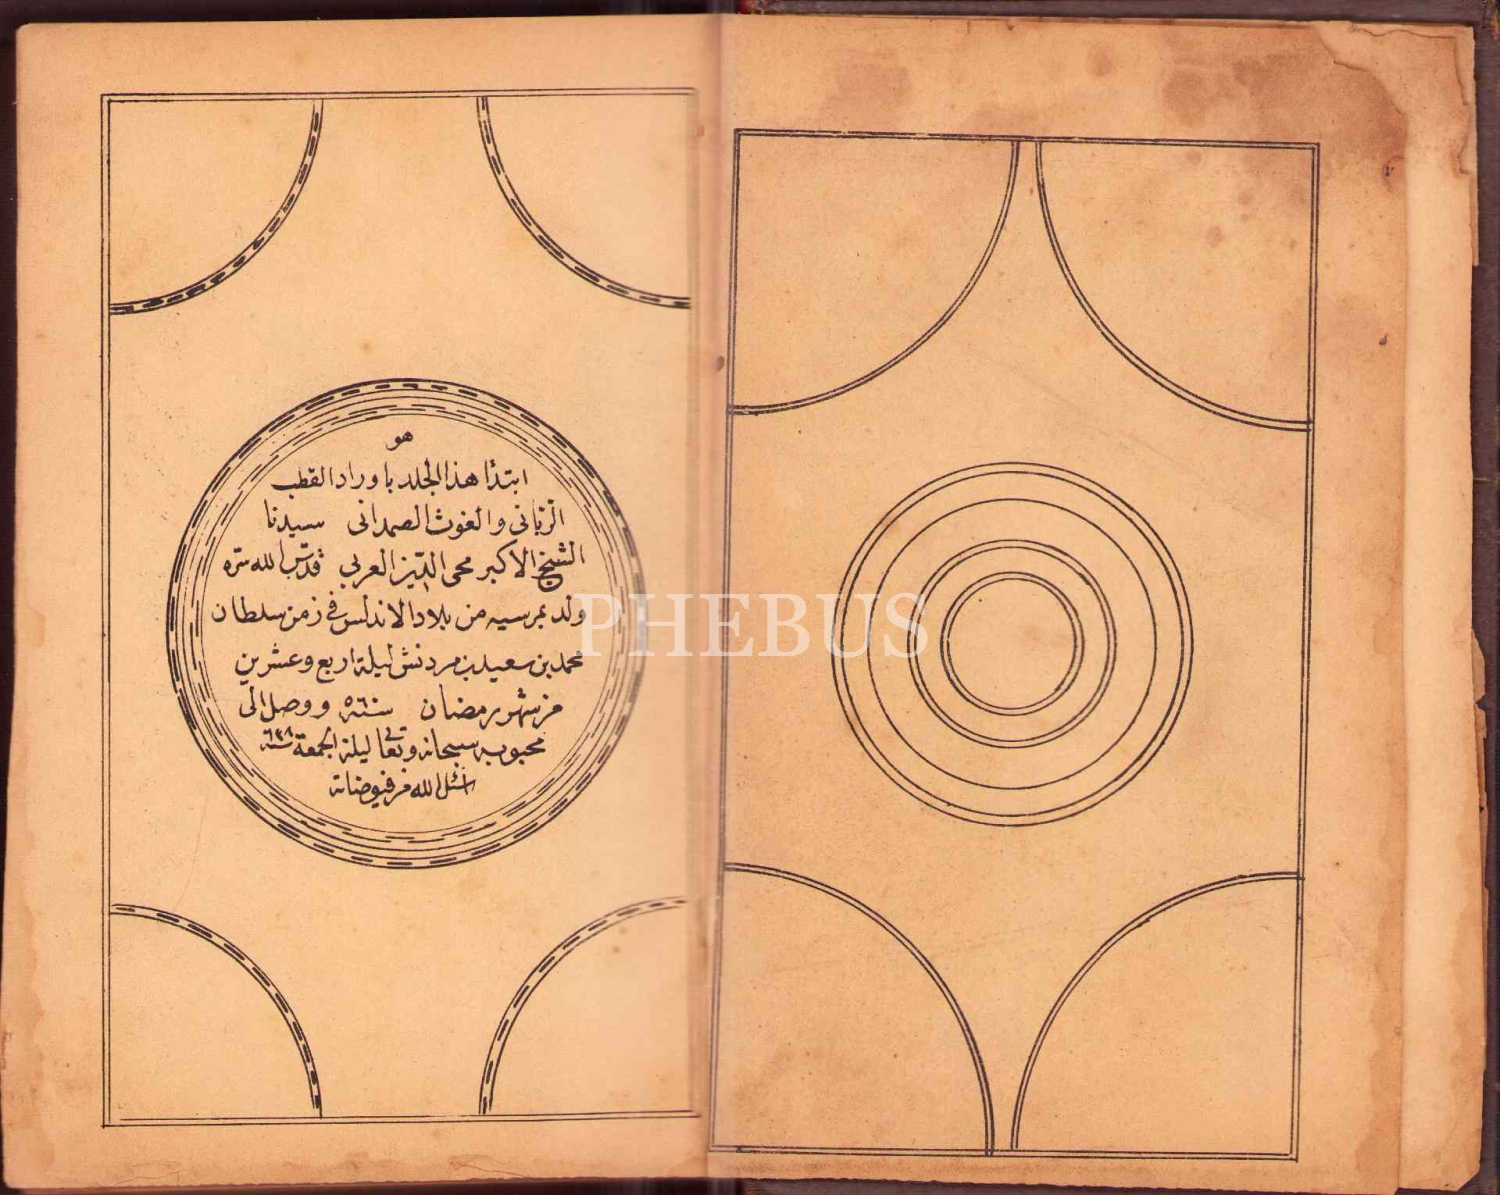 هو
ابتدأ هذا المجلد باوراد القطب
الربانى والغوث الصمدانى سيدنا
الشيخ الاكبر محى الدين العربي قدّس الله سرّه
ولد بمرسيه من بلاد الاندلس فى زمن سلطان
محمد بن سعيد بن مردنش ليلة اربع وعشرين
من شهر رمضان سنة ٥٦٠ ووصل الى
محبوبه سبحانه وتعالى ليلة الجمعة سنة ٦٣٨
الله من فيوضاته
PHEBUS